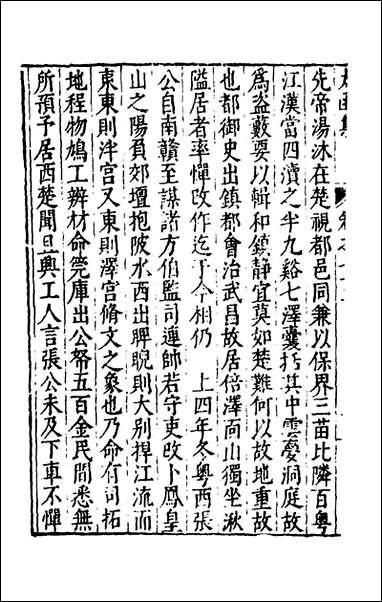 太函集
卷之七十
先帝湯沐在楚視都邑同兼以保界三苗比隣百粤
江漢當四瀆之半九谿七澤囊括其中雲夢洞庭故
為盗藪要以輯和鎮静宜莫如楚難何以故地重故
也都御史出鎮都會治武昌故居倍澤而山獨坐湫
隘居者率憚改作迄于今相仍 上四年冬粤西張
公自南贛至謀諸方伯監司連帥若守吏改卜鳳皇
山之陽負郊壇抱陂水西出睥睨則大别捍江流而
東東則泮宫又東則澤宫脩文之象也乃命有司拓
地程物鳩工辦材命筦庫出公帑五百金民間悉無
所預予居西楚聞且興工人言張公未及下車不憚